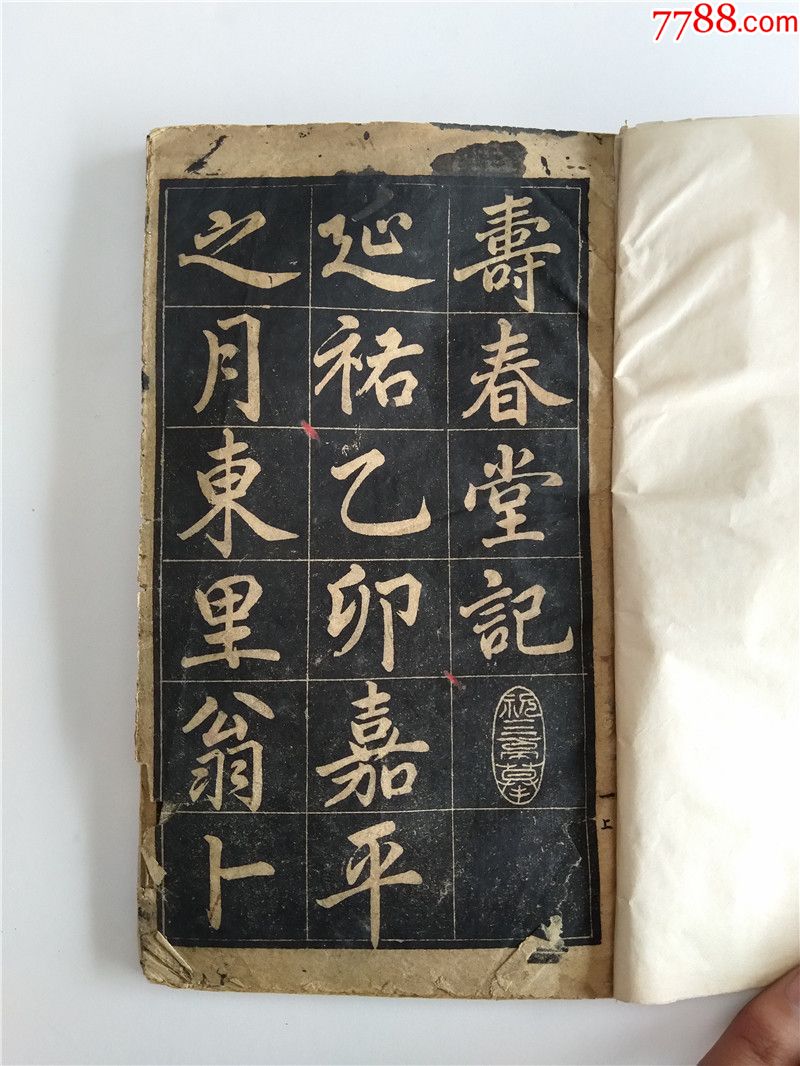 7788.com
壽春堂記
延祐乙卯嘉平
之月東里翁卜
上